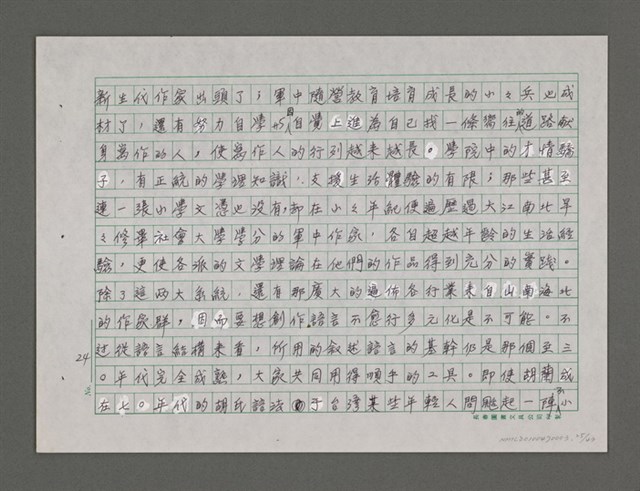 新生代作家出頭了;軍中隨營教育培育成長的小々兵也成
材了,還有努力自學的,因自覺上進為自己找一條嚮往的道路獻
身寫作的人,使寫作人的行列越來越長。學院中的才情驕
子,有正統的學理知識,支援生活體驗的有限;那些甚至
連一張小學文憑也沒有,却在小々年紀便遍歷過大江南北早
々修畢社會大學學分的軍中作家,各自超越年齡的生活經
驗,更使各派的文學理論在他們的作品得到充分的實踐。
除了這兩大系統,還有那廣大的遍佈各行業来自山南海北
的作家群,因而要想創作語言不愈行多元化是不可能。不
过從語言結構來看,所用的叙述語言的基幹仍是那個至三
〇年代完全成熟,大家共同用得順手的工具。即使胡蘭成
在七〇年代的胡氏語法于台灣某些年輕人間颳起一陣小
24